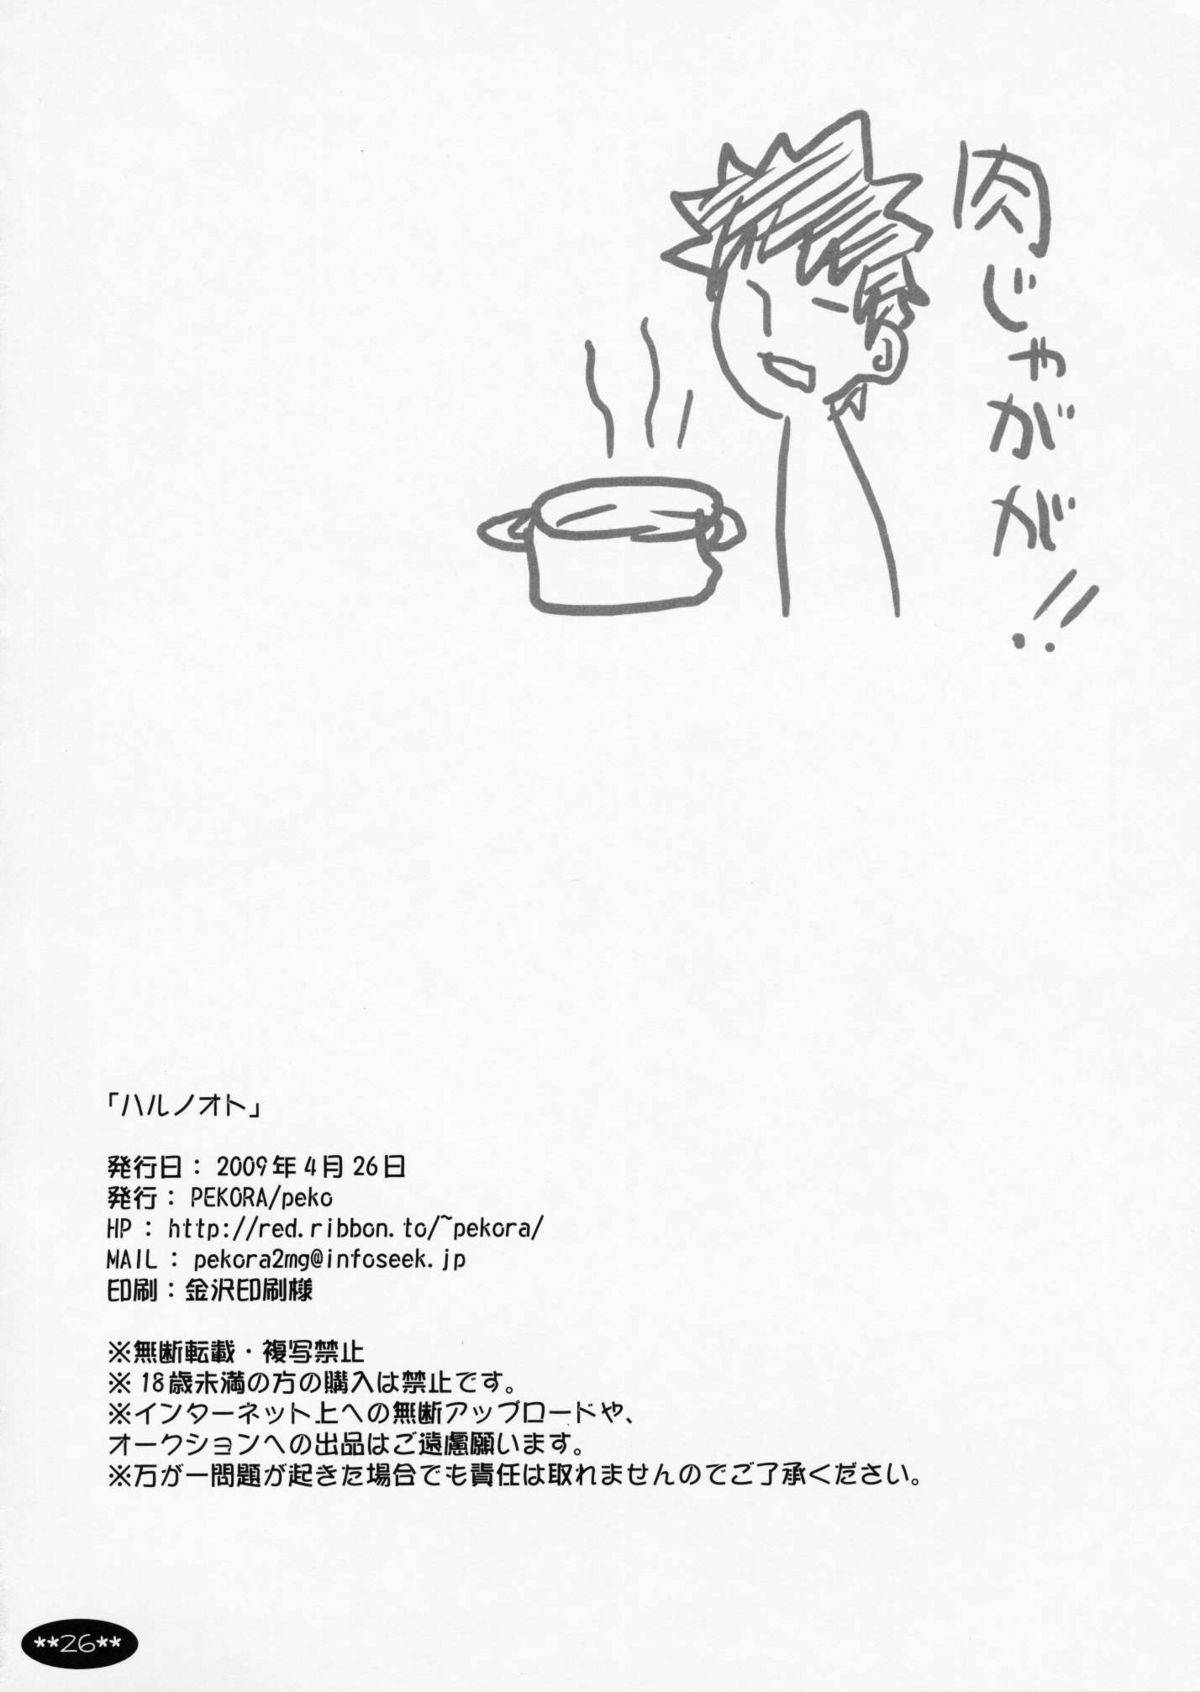 肉じゃがが!!
「ハルノオト」
発行日： 2009年4月26日
発行： PEKORA/peko
HP： http://red.ribbon.to/~pekora/
MAIL： pekora2mg@infoseek.jp
印刷：金沢印刷様
※無断転載・複写禁止
※18歳未満の方の購入は禁止です。
※インターネット上への無断アップロードや、
オークションへの出品はご遠慮願います。
※万が一問題が起きた場合でも責任は取れませんのでご了承ください。
**26**